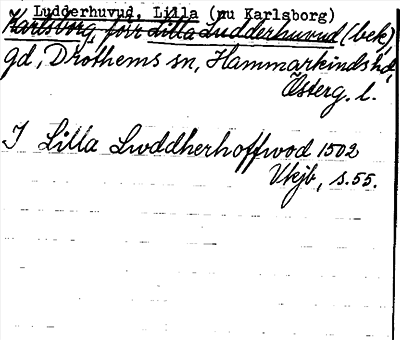 Ludderhuvud, Lilla (nu Karlsborg)
Karlsborg, förr Lilla Ludderhuvud (bek)
gd, Drothems sn, Hammarkinds hd,
Österg. l.
I Lilla Lwddherhoffwod 1502
Vkjb, s. 55.